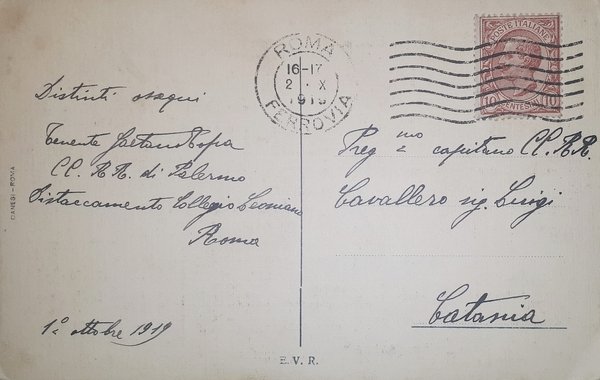 Distinti ossequi
Tenente Gaetano
CC. RR. di Palermo
Distaccamento Collegio Leoniano
Roma
1º ottobre 1919
DANESI - ROMA
E. V. R.
ROMA
16-17
2 · X
1919
FERROVIA
POSTE ITALIANE
10 CENTESIMI 10
Preg mo capitano CC. RR.
Cavallero sig. Luigi
Catania